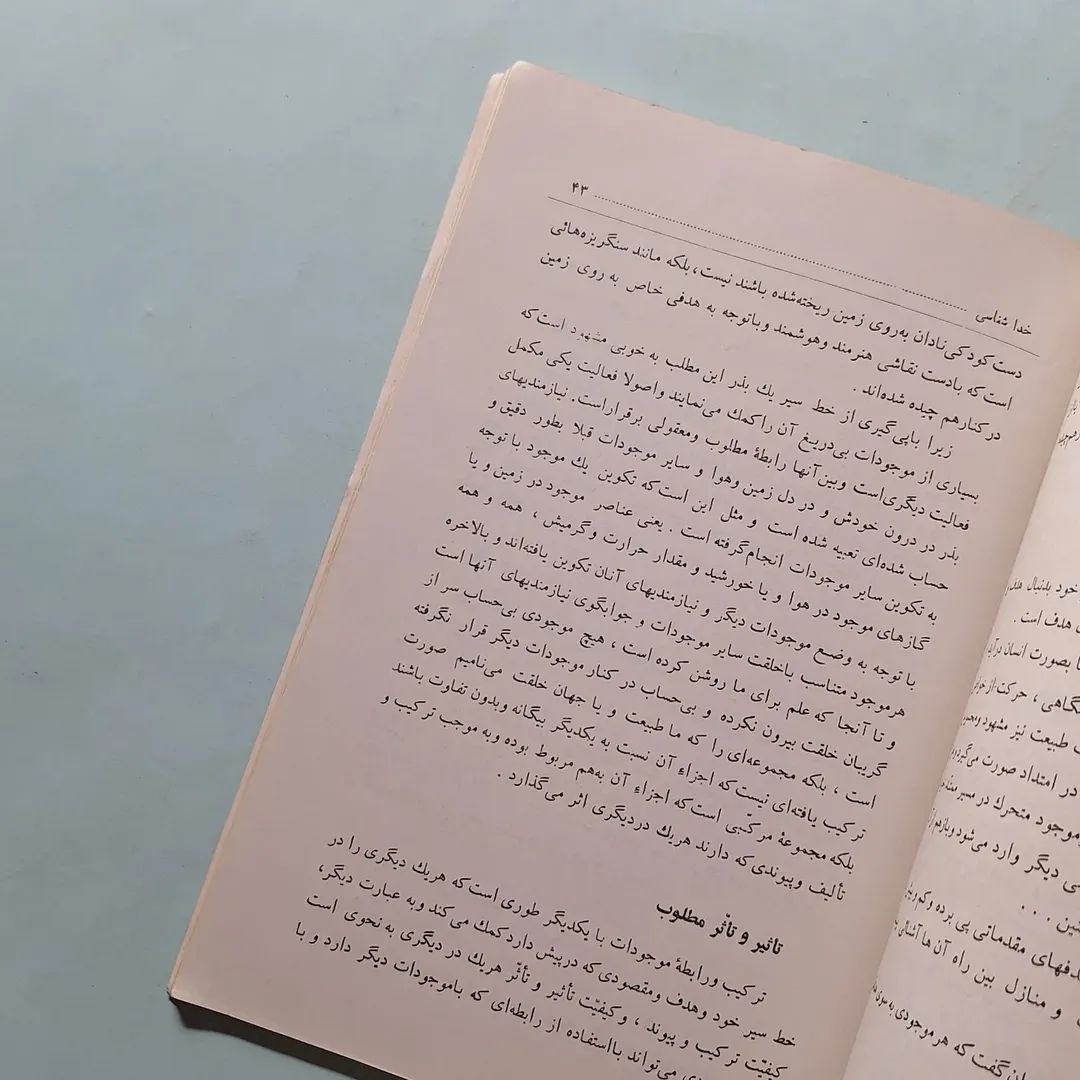 خدا شناسی ........................................ ۴۳
دست کودکی‌نادان به‌روی زمین ریخته‌شده باشند نیست، بلکه مانند سنگریزه‌هائی
است که بادست نقاشی هنرمند وهوشمند وباتوجه به هدفی خاص به روی زمین
درکنارهم چیده شده‌اند .
زیرا باپی‌گیری از خط سیر یك بذر این مطلب به خوبی مشهود است‌که
بسیاری از موجودات بی‌دریغ آن راکمك می‌نمایند واصولا فعالیت یکی مکمل
فعالیت دیگری‌است وبین‌آنها رابطهٔ مطلوب ومعقولی برقراراست. نیازمندیهای
بذر در درون خودش و در دل زمین وهوا و سایر موجودات قبلا بطور دقیق و
حساب شده‌ای تعبیه شده است و مثل این است‌که تکوین یك موجود با توجه
به تکوین سایر موجودات انجام‌گرفته است . یعنی عناصر موجود در زمین و یا
گازهای موجود در هوا و یا خورشید و مقدار حرارت وگرمیش ، همه و همه
با توجه به وضع موجودات دیگر و نیازمندیهای آنان تکوین یافته‌اند و بالاخره
هرموجود متناسب باخلقت سایر موجودات و جوابگوی نیازمندیهای آنها است
و تا آنجا که علم برای ما روشن کرده است ، هیچ موجودی بی‌حساب سر از
گریبان خلقت بیرون نکرده و بی‌حساب در کنار موجودات دیگر قرار نگرفته
است ، بلکه مجموعه‌ای را که ما طبیعت و یا جهان خلقت می‌نامیم صورت
ترکیب یافته‌ای نیست‌که اجزاء آن نسبت به یکدیگر بیگانه وبدون تفاوت باشند
بلکه مجموعهٔ مرکّبی است‌که اجزاء آن به‌هم مربوط بوده وبه موجب ترکیب و
تألیف وپیوندی‌که دارند هریك دردیگری اثر می‌گذارد .
تاثیر و تأثّر مطلوب
ترکیب ورابطهٔ موجودات با یکدیگر طوری است‌که هریك دیگری را در
خط سیر خود وهدف ومقصودی که درپیش دارد کمك می‌کند وبه عبارت دیگر،
کیفیّت ترکیب و پیوند ، وکیفیّت تأثیر و تأثّر هریك در دیگری به نحوی است
می‌تواند بااستفاده از رابطه‌ای که باموجودات دیگر دارد و با
خود بدنبال هدف
هدف است .
بصورت انسان درآید
حرکت از
طبیعت نیز مشهود و
در امتداد صورت می‌گیرد
موجود متحرك در مسیر
دیگر وارد می‌شود وبازهم از
. . .
هدفهای مقدماتی پی برده وکم
و منازل بین راه آن ها آشنائی
گفت که هرموجودی به سوی